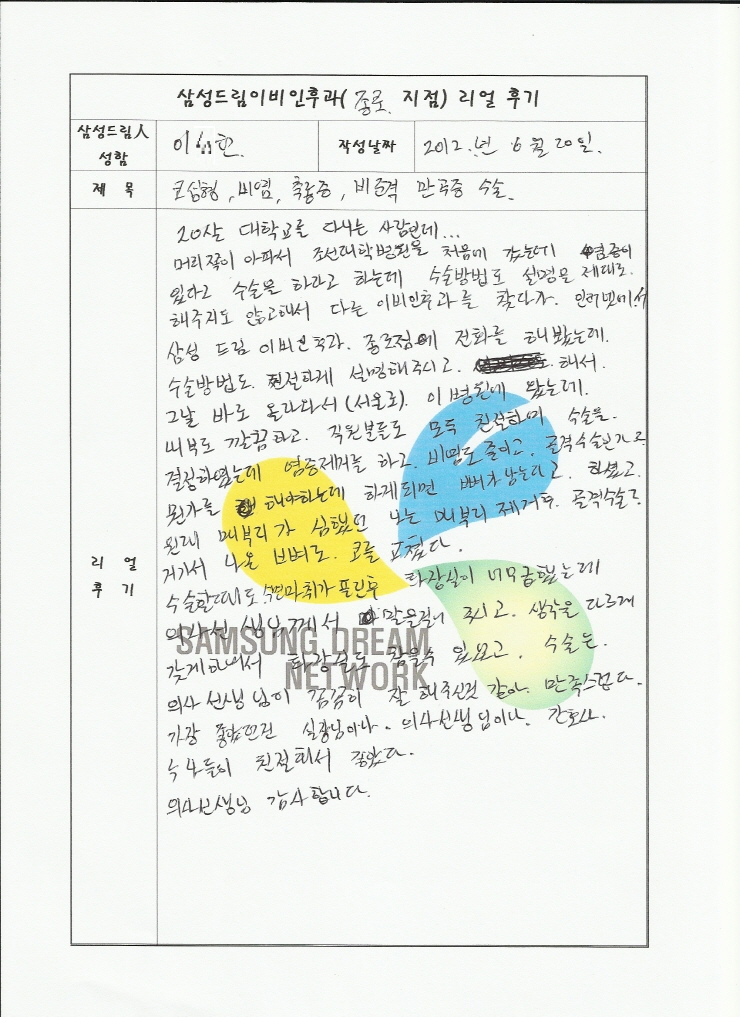 삼성드림이비인후과( 종로 지점) 리얼 후기
삼성드림人 성함
이 현
작성날짜
2012.년 6월 20일.
제 목
코성형, 비염, 축농증, 비중격 만곡증 수술.
리 얼 후 기
20살 대학교를 다니는 사람인데...
머리쪽이 아파서 조선대학병원을 처음에 갔는데 염증이
있다고 수술을 하라고 하는데 수술방법도 설명을 제대로.
해주지도 않고해서 다른 이비인후과를 찾다가. 인터넷에서
삼성 드림 이비인후과. 종로점에 전화를 해봤는데.
수술방법도. 친절하게 설명해주시고. 해서.
그날 바로 올라와서 (서울로). 이 병원에 왔는데.
내부도 깔끔하고. 직원분들도 모두 친절하며 수술을.
결정하였는데 염증제거를 하고. 비염도 줄이고. 골격수술인가로
뭔가를 해야하는데 하게되면 뼈가 남는다고. 하셨고.
원래 매부리가 심했던 나는 매부리 제거후. 골격수술로
거기서 나온 뼈로. 코를 고쳤다.
수술할때도 수면마취가 풀린후 화장실이 너무급했는데
의사선생님께서 말을걸어 주시고. 생각을 다르게
갖게하셔서 화장실도 참을수 있었고. 수술은.
의사선생님이 꼼꼼히 잘 해주신것 같아. 만족스럽다.
가장 좋았던건 실장님이나. 의사선생님이나. 간호사.
누나들이 친절해서 좋았다.
의사선생님 감사합니다.
SAMSUNG DREAM
NETWORK